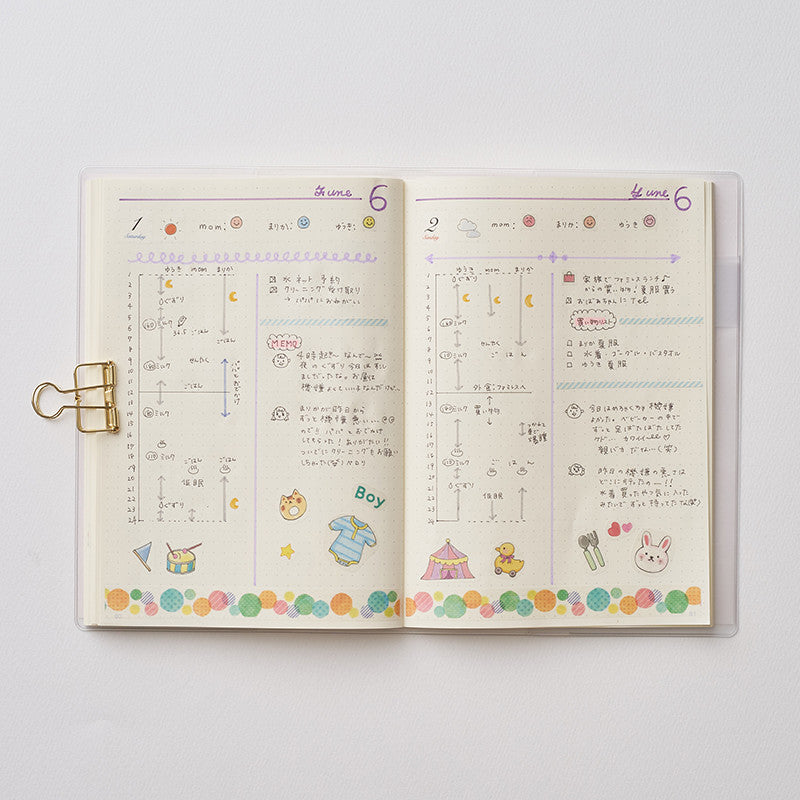 June 6
1
Saturday
mom:
まりか:
ゆうき:
ゆうき mom まりか
1
2
3
4
5
6
7
8
9
10
11
12
13
14
15
16
17
18
19
20
21
22
23
24
ぐずり
ミルク
36.5 ごはん
ミルク
せんたく
ごはん
パパとおでかけ
ミルク
ミルク
ごはん
ごはん
ぐずり
仮眠
水 ネット 予約
クリーニング 受け取り
→ パパにおねがい
MEMO
4時起き〜 なんで〜
夜のぐずり今日はすこし
ましだったな。お昼は
機嫌よくていい子なんだけど〜
まりかが昨日から
ずっと機嫌悪い…
ので!! パパとおでかけ
してもらった! ありがたい!!
ついでにクリーニングもお願い
しちゃった(笑)
Boy
June 6
2
Sunday
mom:
まりか:
ゆうき:
ゆうき mom まりか
1
2
3
4
5
6
7
8
9
10
11
12
13
14
15
16
17
18
19
20
21
22
23
24
ぐずり
ミルク
せんたく
ミルク
ごはん
外食:ファミレスへ
ミルク
買い物
ミルク
ごはん
ぐずり
仮眠
家族でファミレスランチ♪
からの買い物! 夏服買う
おばあちゃんに Tel
買い物リスト
まりか 夏服
水着・ゴーグル・バスタオル
ゆうき 夏服
機嫌
よかった。ベビーカーの中で
ずっと足ばたばたしてた
けど… カワイイ
親バカだな〜(笑)
昨日の機嫌の悪さは
どこに行ったの〜!!
水着買ったやつ気に入った
みたいでずっと持ってたな(笑)